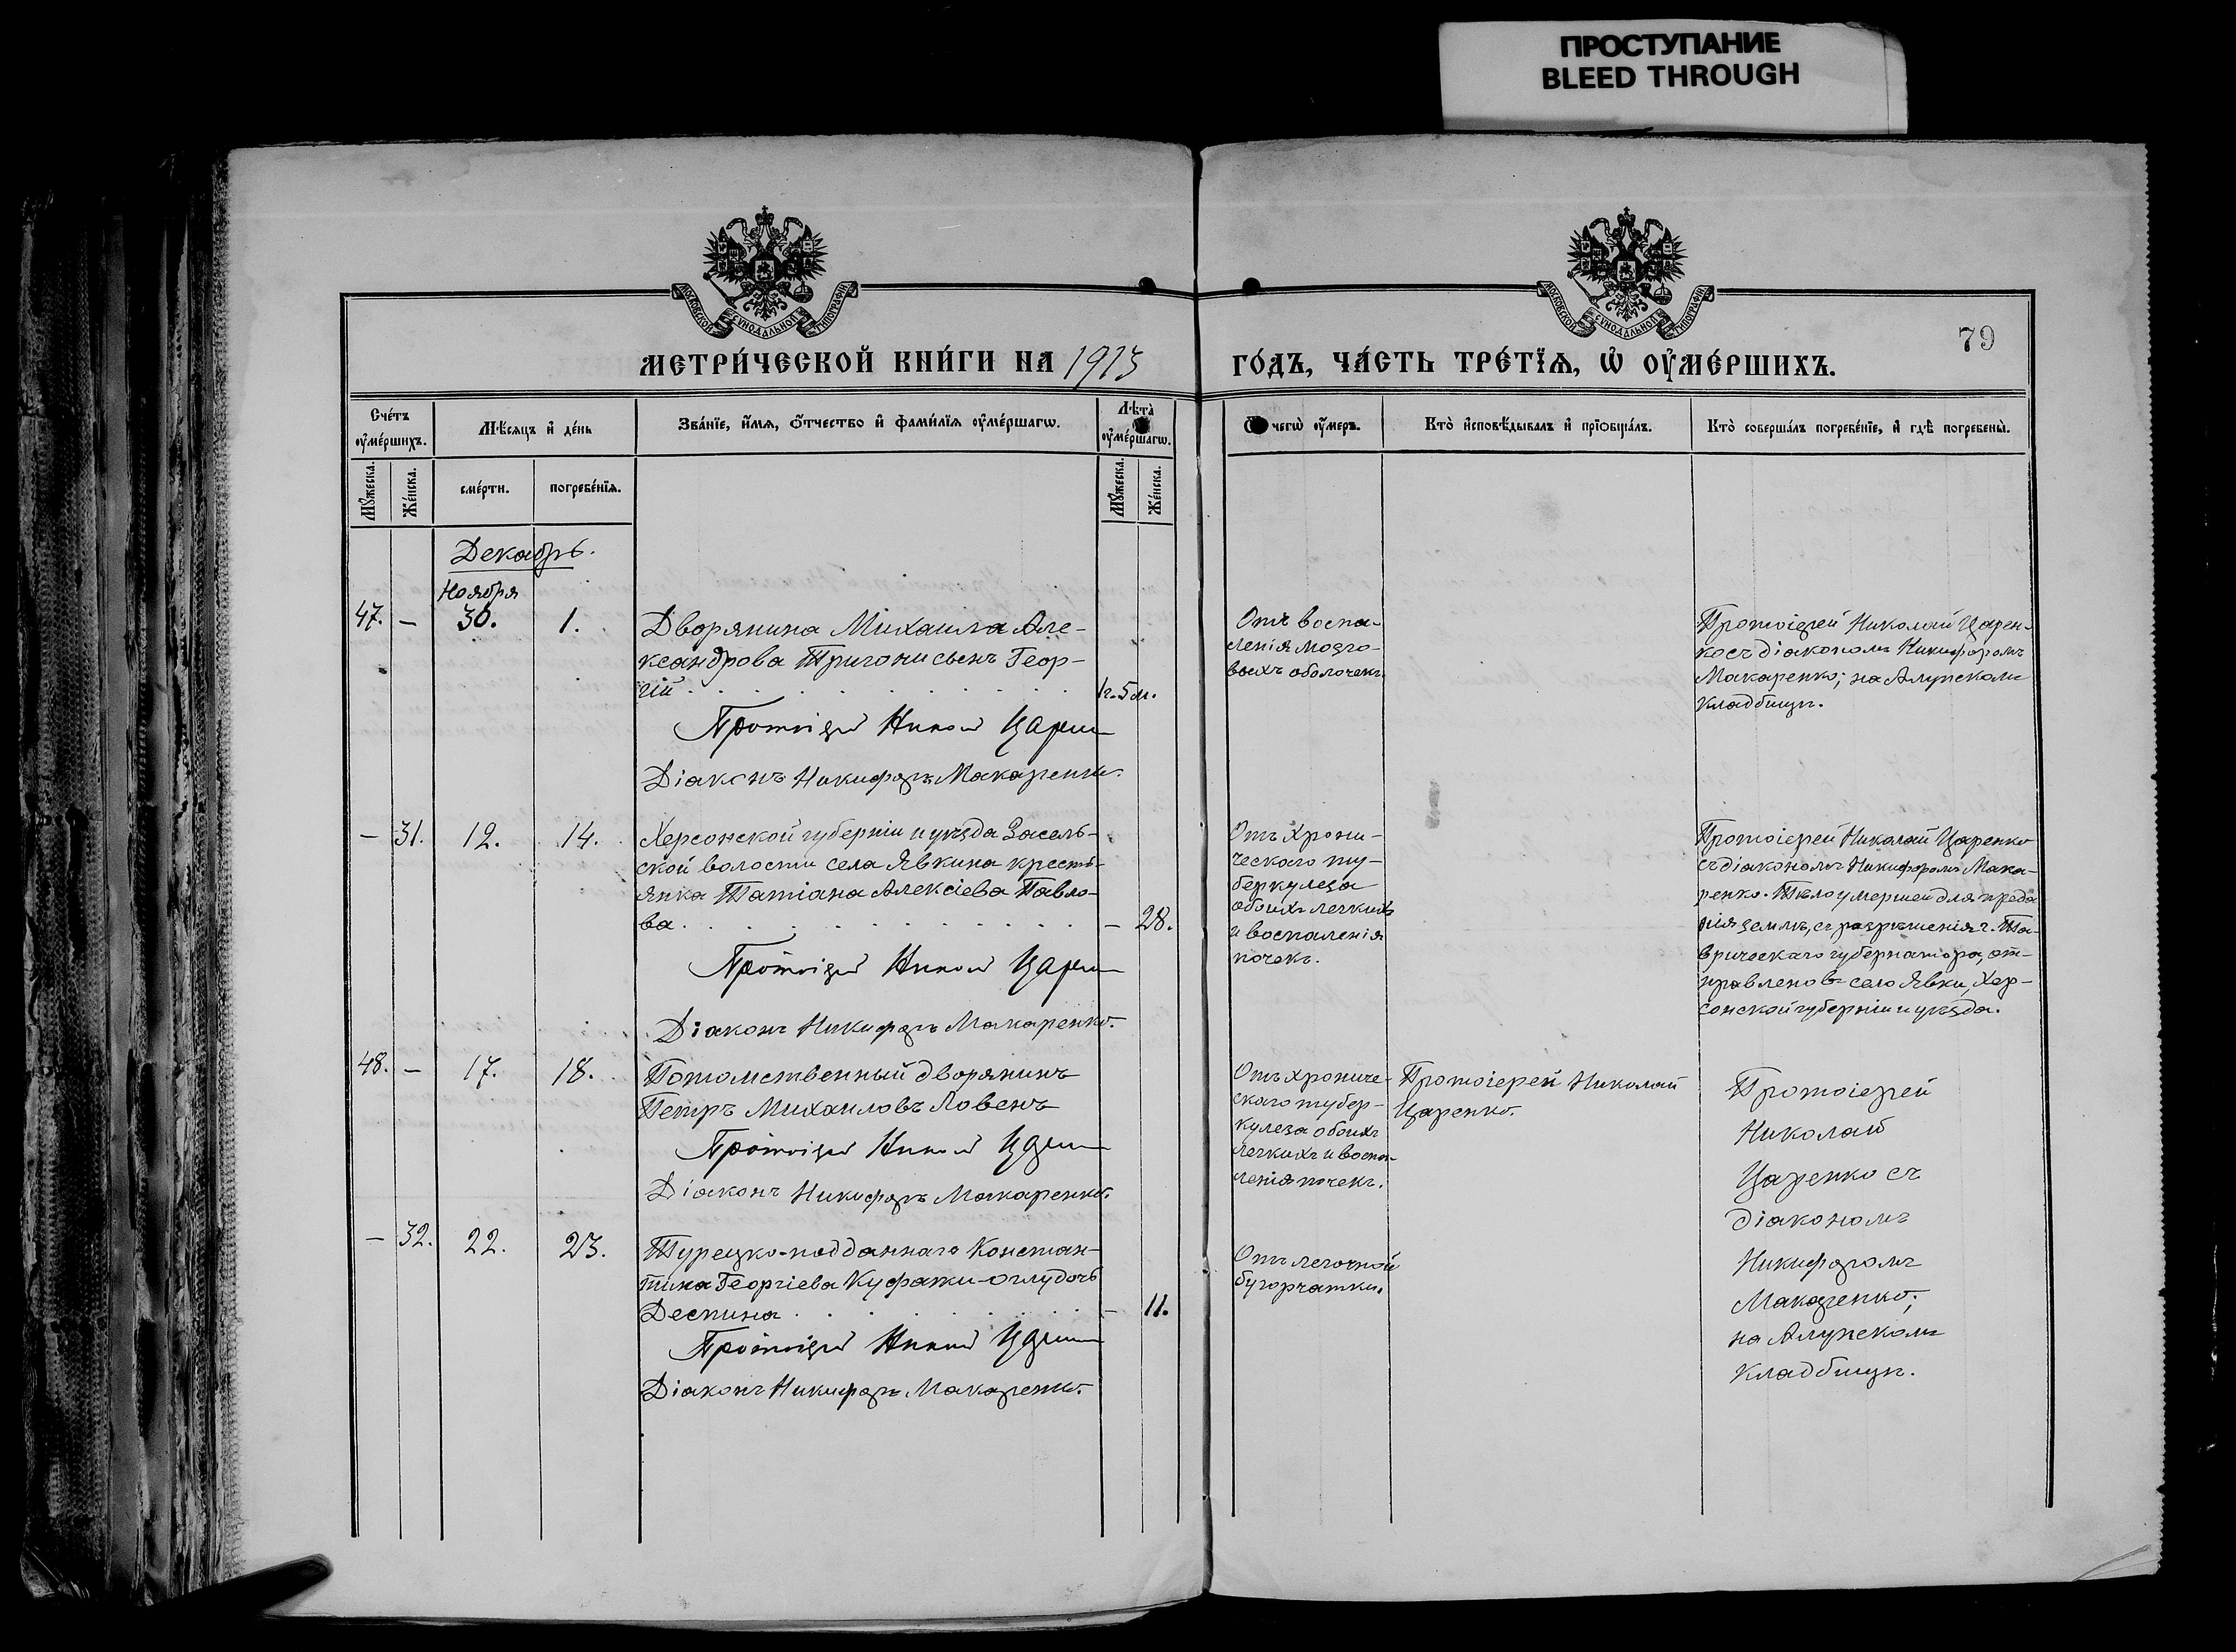 ПРОСТУПАНИЕ
BLEED THROUGH
МОСКОВСКОЙ СѴНОДАЛЬНОЙ ТИПОГРАФІИ
МОСКОВСКОЙ СѴНОДАЛЬНОЙ ТИПОГРАФІИ
79
МЕТРИ́ЧЕСКОЙ КНИ́ГИ НА 1913 ГО́ДЪ, ЧА́СТЬ ТРЕ́ТЇѦ, Ѡ҆ ОУ҆МЕ́РШИХЪ.
Сче́тъ оу҆ме́ршихъ.
Мꙋ́жеска.
Же́нска.
Мѣ́сяцъ и҆ де́нь
сме́рти.
погребе́нїѧ.
Зва́нїе, и҆́мѧ, ѻ҆́тчество и҆ фами́лїѧ оу҆ме́ршагѡ.
Лѣ́та̀ оу҆ме́ршагѡ.
Мꙋ́жеска.
Же́нска.
Ѿ чегѡ̀ оу҆́меръ.
Кто̀ и҆сповѣ́дывалъ и҆ прїѻбща́лъ.
Кто̀ соверша́лъ погребе́нїе, и҆ гдѣ̀ погребены̀.
Декабрь.
Ноября
47. – 30. 1.
Дворянина Михаила Але-
ксандрова Тригонисьенъ Геор-
гій 1г. 5 м.
Протоіерей Никол Царен
Діаконъ Никифоръ Макаренко.
Отъ воспа-
ленія мозго-
выхъ оболочекъ.
Протоіерей Николай Царен-
ко съ діакономъ Никифоромъ
Макаренко; на Алупском
кладбищѣ.
– 31. 12. 14.
Херсонской губерніи и уѣзда Засель-
ской волости села Явкина кресть-
янка Татіана Алексіева Павло-
ва – 28.
Протоіерей Никол Царен
Діаконъ Никифоръ Макаренко.
Отъ хрони-
ческаго ту-
беркулеза
обоихъ легкихъ
и воспаленія
почекъ.
Протоіерей Николай Царенко
съ діакономъ Никифоромъ Мака-
ренко. Тѣло умершей для преда
нія землѣ, съ разрѣшенія г. Та-
врическаго губернатора, от-
правлено въ село Явки, Хер-
сонской губерніи и уѣзда.
48. – 17. 18.
Потомственный дворянинъ
Петръ Михаиловъ Ловенъ
Протоіерей Никол Царен
Діаконъ Никифоръ Макаренко.
Отъ хрониче-
скаго тубер-
кулеза обоихъ
легкихъ и воспа-
ленія почекъ.
Протоіерей Николай
Царенко.
Протоіерей
Николай
Царенко съ
діакономъ
Никифоромъ
Макаренко;
на Алупском
кладбищѣ.
– 32. 22. 23.
Турецко-подданнаго Констан-
тина Георгіева Куфажи-оглу дочь
Деспина – 11.
Протоіерей Никол Царен
Діаконъ Никифоръ Макаренко.
Отъ легочной
бугорчатки.